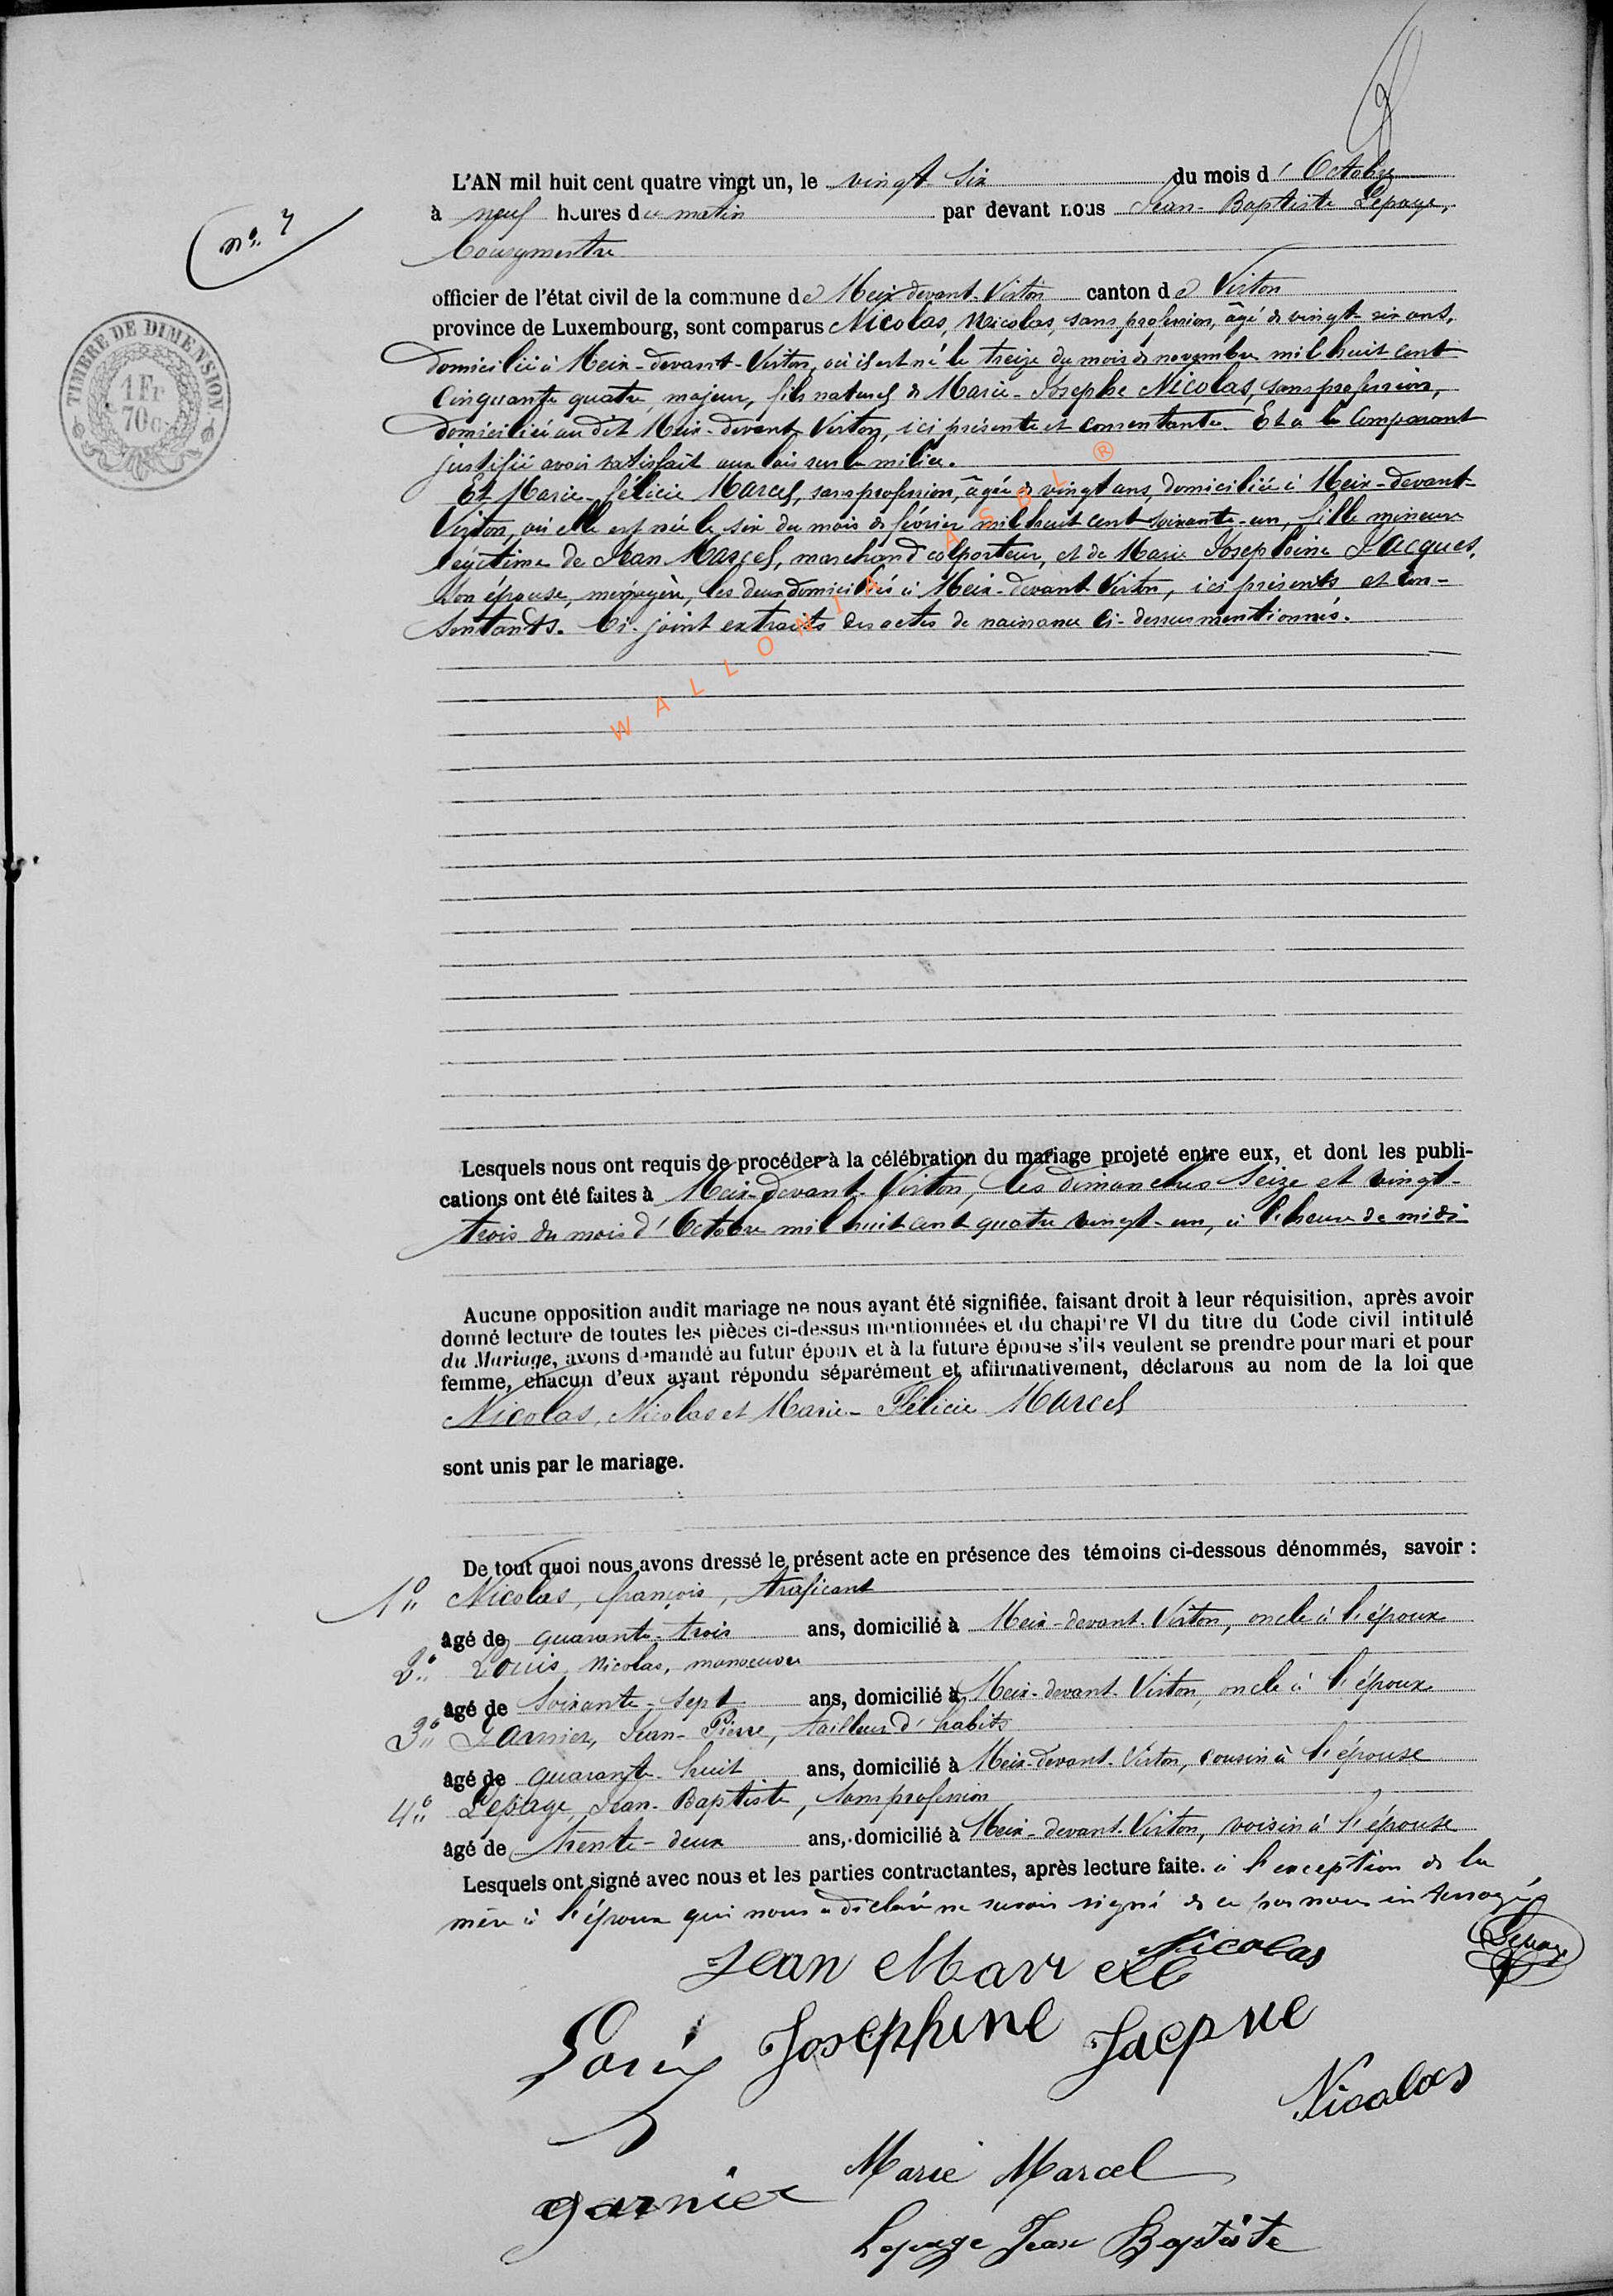 L'AN mil huit cent quatre vingt un, le vingt-six du mois d'Octobre
à neuf heures du matin par devant nous Jean-Baptiste Lepage,
bourgmestre
n° 7
officier de l'état civil de la commune de Meix-devant-Virton canton de Virton
province de Luxembourg, sont comparus Nicolas, Nicolas, sans profession, âgé de vingt-six ans,
domicilié à Meix-devant-Virton, où il est né le treize du mois de novembre mil huit cent
cinquante quatre, majeur, fils naturel de Marie-Josephe Nicolas, sans profession,
domiciliée au dit Meix-devant-Virton, ici présente et consentante. Et a le comparant
justifié avoir satisfait aux lois sur la milice.
Et Marie-Félicie Marcel, sans profession, âgée de vingt ans, domiciliée à Meix-devant-
Virton, où elle est née le six du mois de février mil huit cent soixante-un, fille mineure
légitime de Jean Marcel, marchand colporteur, et de Marie Josephine Jacques,
son épouse, ménagère, les deux domiciliés à Meix-devant-Virton, ici présents et con-
sentants. Ci-joint extraits des actes de naissance ci-dessus mentionnés.
TIMBRE DE DIMENSION
1 Fr
70c
WALLONIA ASBL ®
Lesquels nous ont requis de procéder à la célébration du mariage projeté entre eux, et dont les publi-
cations ont été faites à Meix-devant-Virton, les dimanches seize et vingt-
trois du mois d'Octobre mil huit cent quatre vingt-un, à l'heure de midi
Aucune opposition audit mariage ne nous ayant été signifiée, faisant droit à leur réquisition, après avoir
donné lecture de toutes les pièces ci-dessus mentionnées et du chapitre VI du titre du Code civil intitulé
du Mariage, avons demandé au futur époux et à la future épouse s'ils veulent se prendre pour mari et pour
femme, chacun d'eux ayant répondu séparément et affirmativement, déclarons au nom de la loi que
Nicolas, Nicolas et Marie-Félicie Marcel
sont unis par le mariage.
De tout quoi nous avons dressé le présent acte en présence des témoins ci-dessous dénommés, savoir :
1° Nicolas, françois, traficant
âgé de quarante-trois ans, domicilié à Meix-devant-Virton, oncle à l'époux
2° Louis, Nicolas, manoeuvre
âgé de soixante-sept ans, domicilié à Meix-devant-Virton, oncle à l'époux
3° Garnier, Jean-Pierre, tailleur d'habits
âgé de quarante-huit ans, domicilié à Meix-devant-Virton, cousin à l'épouse
4° Lepage, Jean-Baptiste, sans profession
âgé de trente-deux ans, domicilié à Meix-devant-Virton, voisin à l'épouse
Lesquels ont signé avec nous et les parties contractantes, après lecture faite. à l'exception de la
mère à l'époux qui nous a déclaré ne savoir signé de ce par nous interrogée
Nicolas
Lepage
Jean Marcel
Louis Josephine Jacque
Nicolas
Marie Marcel
garnier
Lepage Jean Baptiste